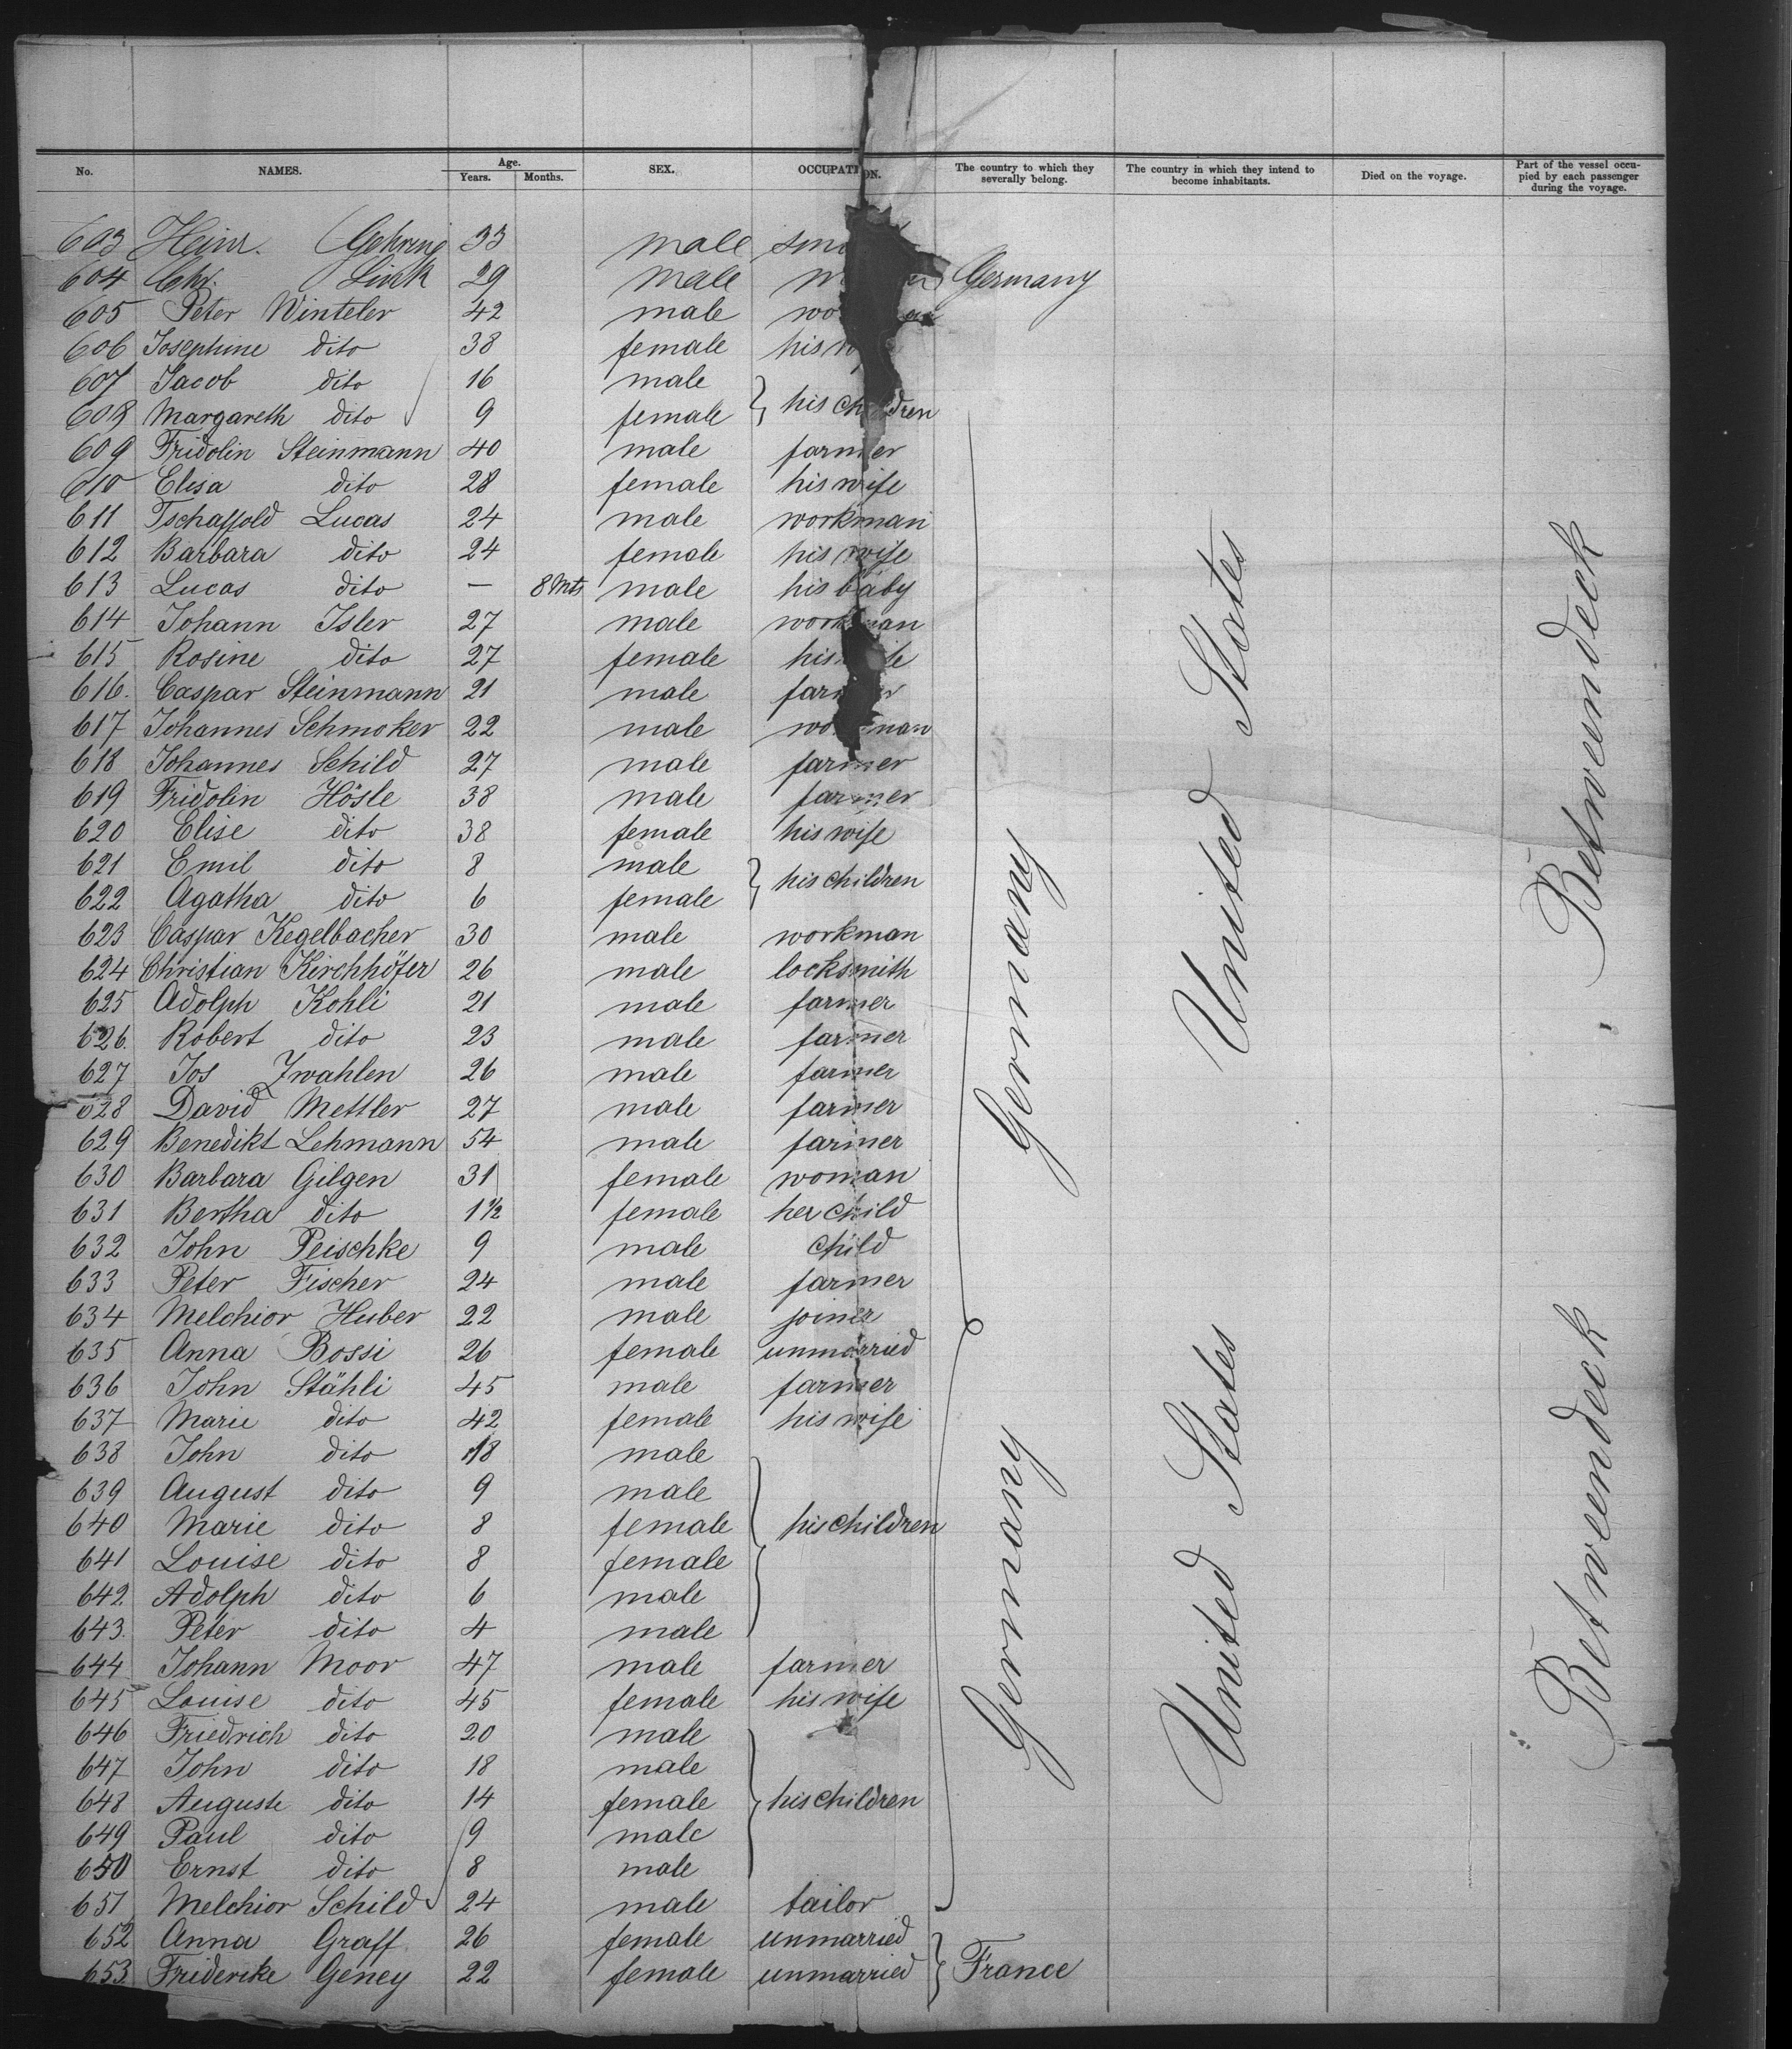 No. NAMES. Age. Years. Months. SEX. OCCUPATION. The country to which they severally belong. The country in which they intend to become inhabitants. Died on the voyage. Part of the vessel occupied by each passenger during the voyage.
603 Heinr. Gehring 33 male
604 Chr. 29 male Germany
605 Peter Winteler 42 male
606 Josephine dito 38 female his
607 Jacob dito 16 male
608 Margareth dito 9 female his children
609 Fridolin Steinmann 40 male farmer
610 Elisa dito 28 female his wife
611 Tschappold Lucas 24 male workman
612 Barbara dito 24 female his wife
613 Lucas dito — 8 Mts male his baby
614 Johann Isler 27 male workman
615 Rosine dito 27 female his wife
616. Caspar Steinmann 21 male farmer
617 Johannes Schmoker 22 male workman
618 Johannes Schild 27 male farmer
619 Fridolin Hösle 38 male farmer
620 Elise dito 38 female his wife
621 Emil dito 8 male
622 Agatha dito 6 female his children
623 Caspar Kegelbacher 30 male workman
624 Christian Kirchhöfer 26 male locksmith
625 Adolph Kohli 21 male farmer
626. Robert dito 23 male farmer
627 Jos Zwahlen 26 male farmer
628 David Mettler 27 male farmer
629 Benedikt Lehmann 54 male farmer
630 Barbara Gilgen 31 female woman
631 Bertha dito 1½ female her child
632 John Peischke 9 male child
633 Peter Fischer 24 male farmer
634 Melchior Huber 22 male joiner
635 Anna Bossi 26 female unmarried
636 John Stähli 45 male farmer
637 Marie dito 42 female his wife
638 John dito 18 male
639 August dito 9 male
640 Marie dito 8 female his children
641 Louise dito 8 female
642 Adolph dito 6 male
643. Peter dito 4 male
644 Johann Moor 47 male farmer
645 Louise dito 45 female his wife
646 Friedrich dito 20 male
647 John dito 18 male
648 Auguste dito 14 female his children
649 Paul dito 9 male
650 Ernst dito 8 male
651 Melchior Schild 24 male tailor
652 Anna Graff 26 female unmarried
653 Friderike Geney 22 female unmarried France
Germany
United States
Betweendeck
Germany
United States
Betweendeck